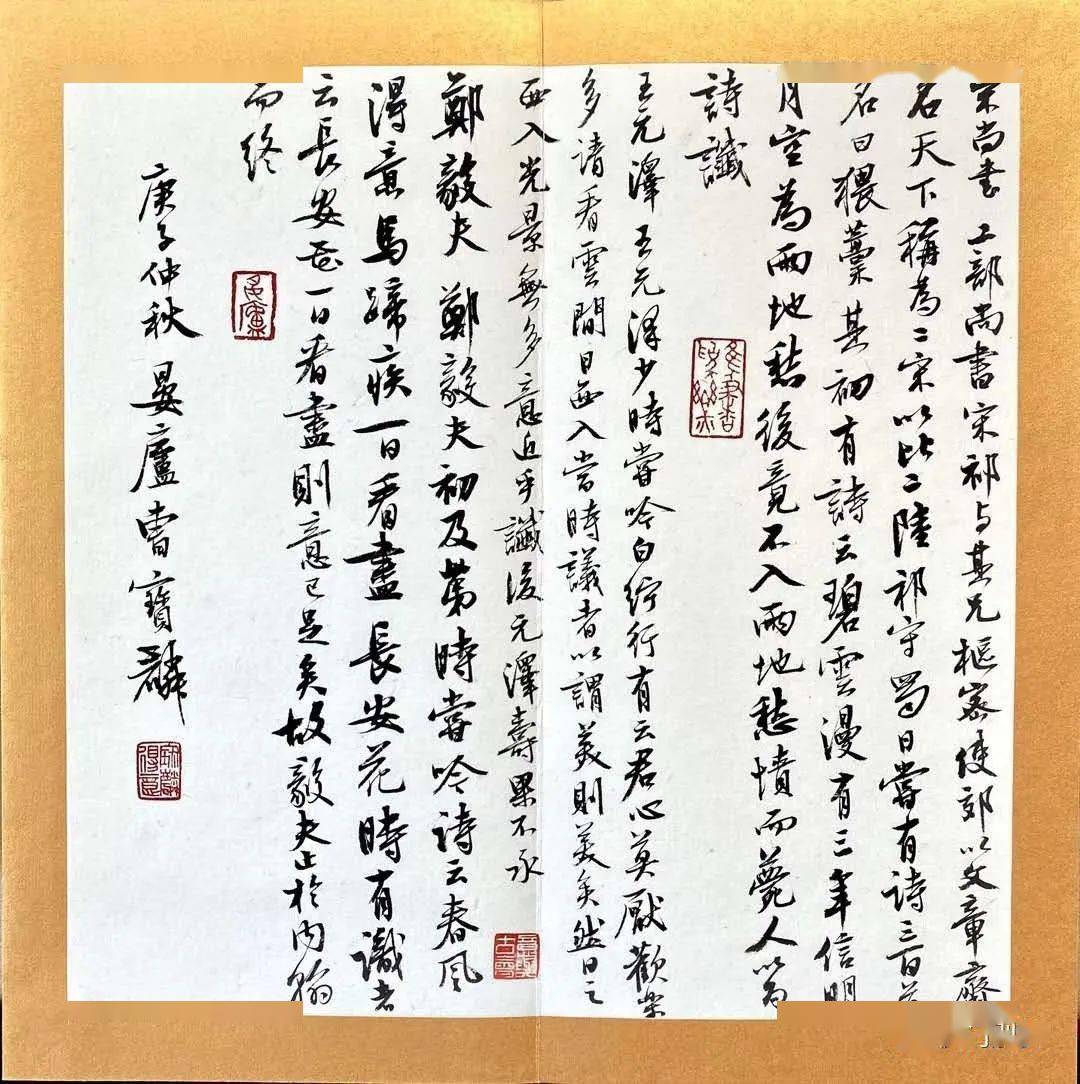 宋尚書 工部尚書宋祁与其兄樞密使郊以文章齊
名天下稱為二宋以比二陸祁守蜀日嘗有詩三百首
名曰猥藁其初有詩云碧雲漫有三年信明
月空為兩地愁後竟不入兩地愁憤而薨人以為
詩讖
王元澤 王元澤少時嘗吟白紵行有云君心莫厭歡樂
多請看雲間日西入當時議者以謂美則美矣然日之
西入光景無多意近乎讖後元澤壽果不永
鄭毅夫 鄭毅夫初及第時嘗吟詩云春風
得意馬蹄疾一日看盡長安花時有識者
云長安花一日看盡則意已足矣故毅夫止於內翰
而終
庚子仲秋 晏廬曹寶麟